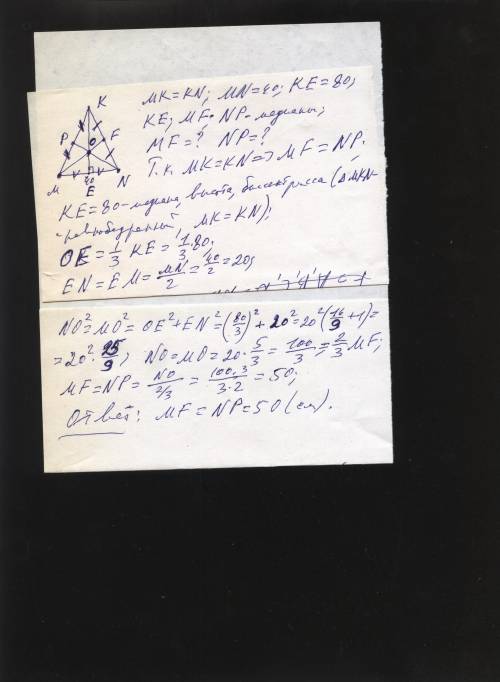 K
P
F
O
M
40
E
N
MK=KN; MN=40; KE=80;
KE; MF; NP-медианы;
MF=? NP=?
Т.к. MK=KN=>MF=NP.
KE=80-медиана, высота, биссектриса (ΔMKN-
"равнобедренный", MK=KN);
OE=1/3 KE=1/3·80;
EN=EM=MN/2=40/2=20;
NO²=MO²=OE²+EN²=(80/3)²+20²=20²(16/9+1)=
=20²·25/9; NO=MO=20·5/3=100/3=2/3MF;
MF=NP=NO/2/3=100·3/3·2=50;
Ответ: MF=NP=50(см).